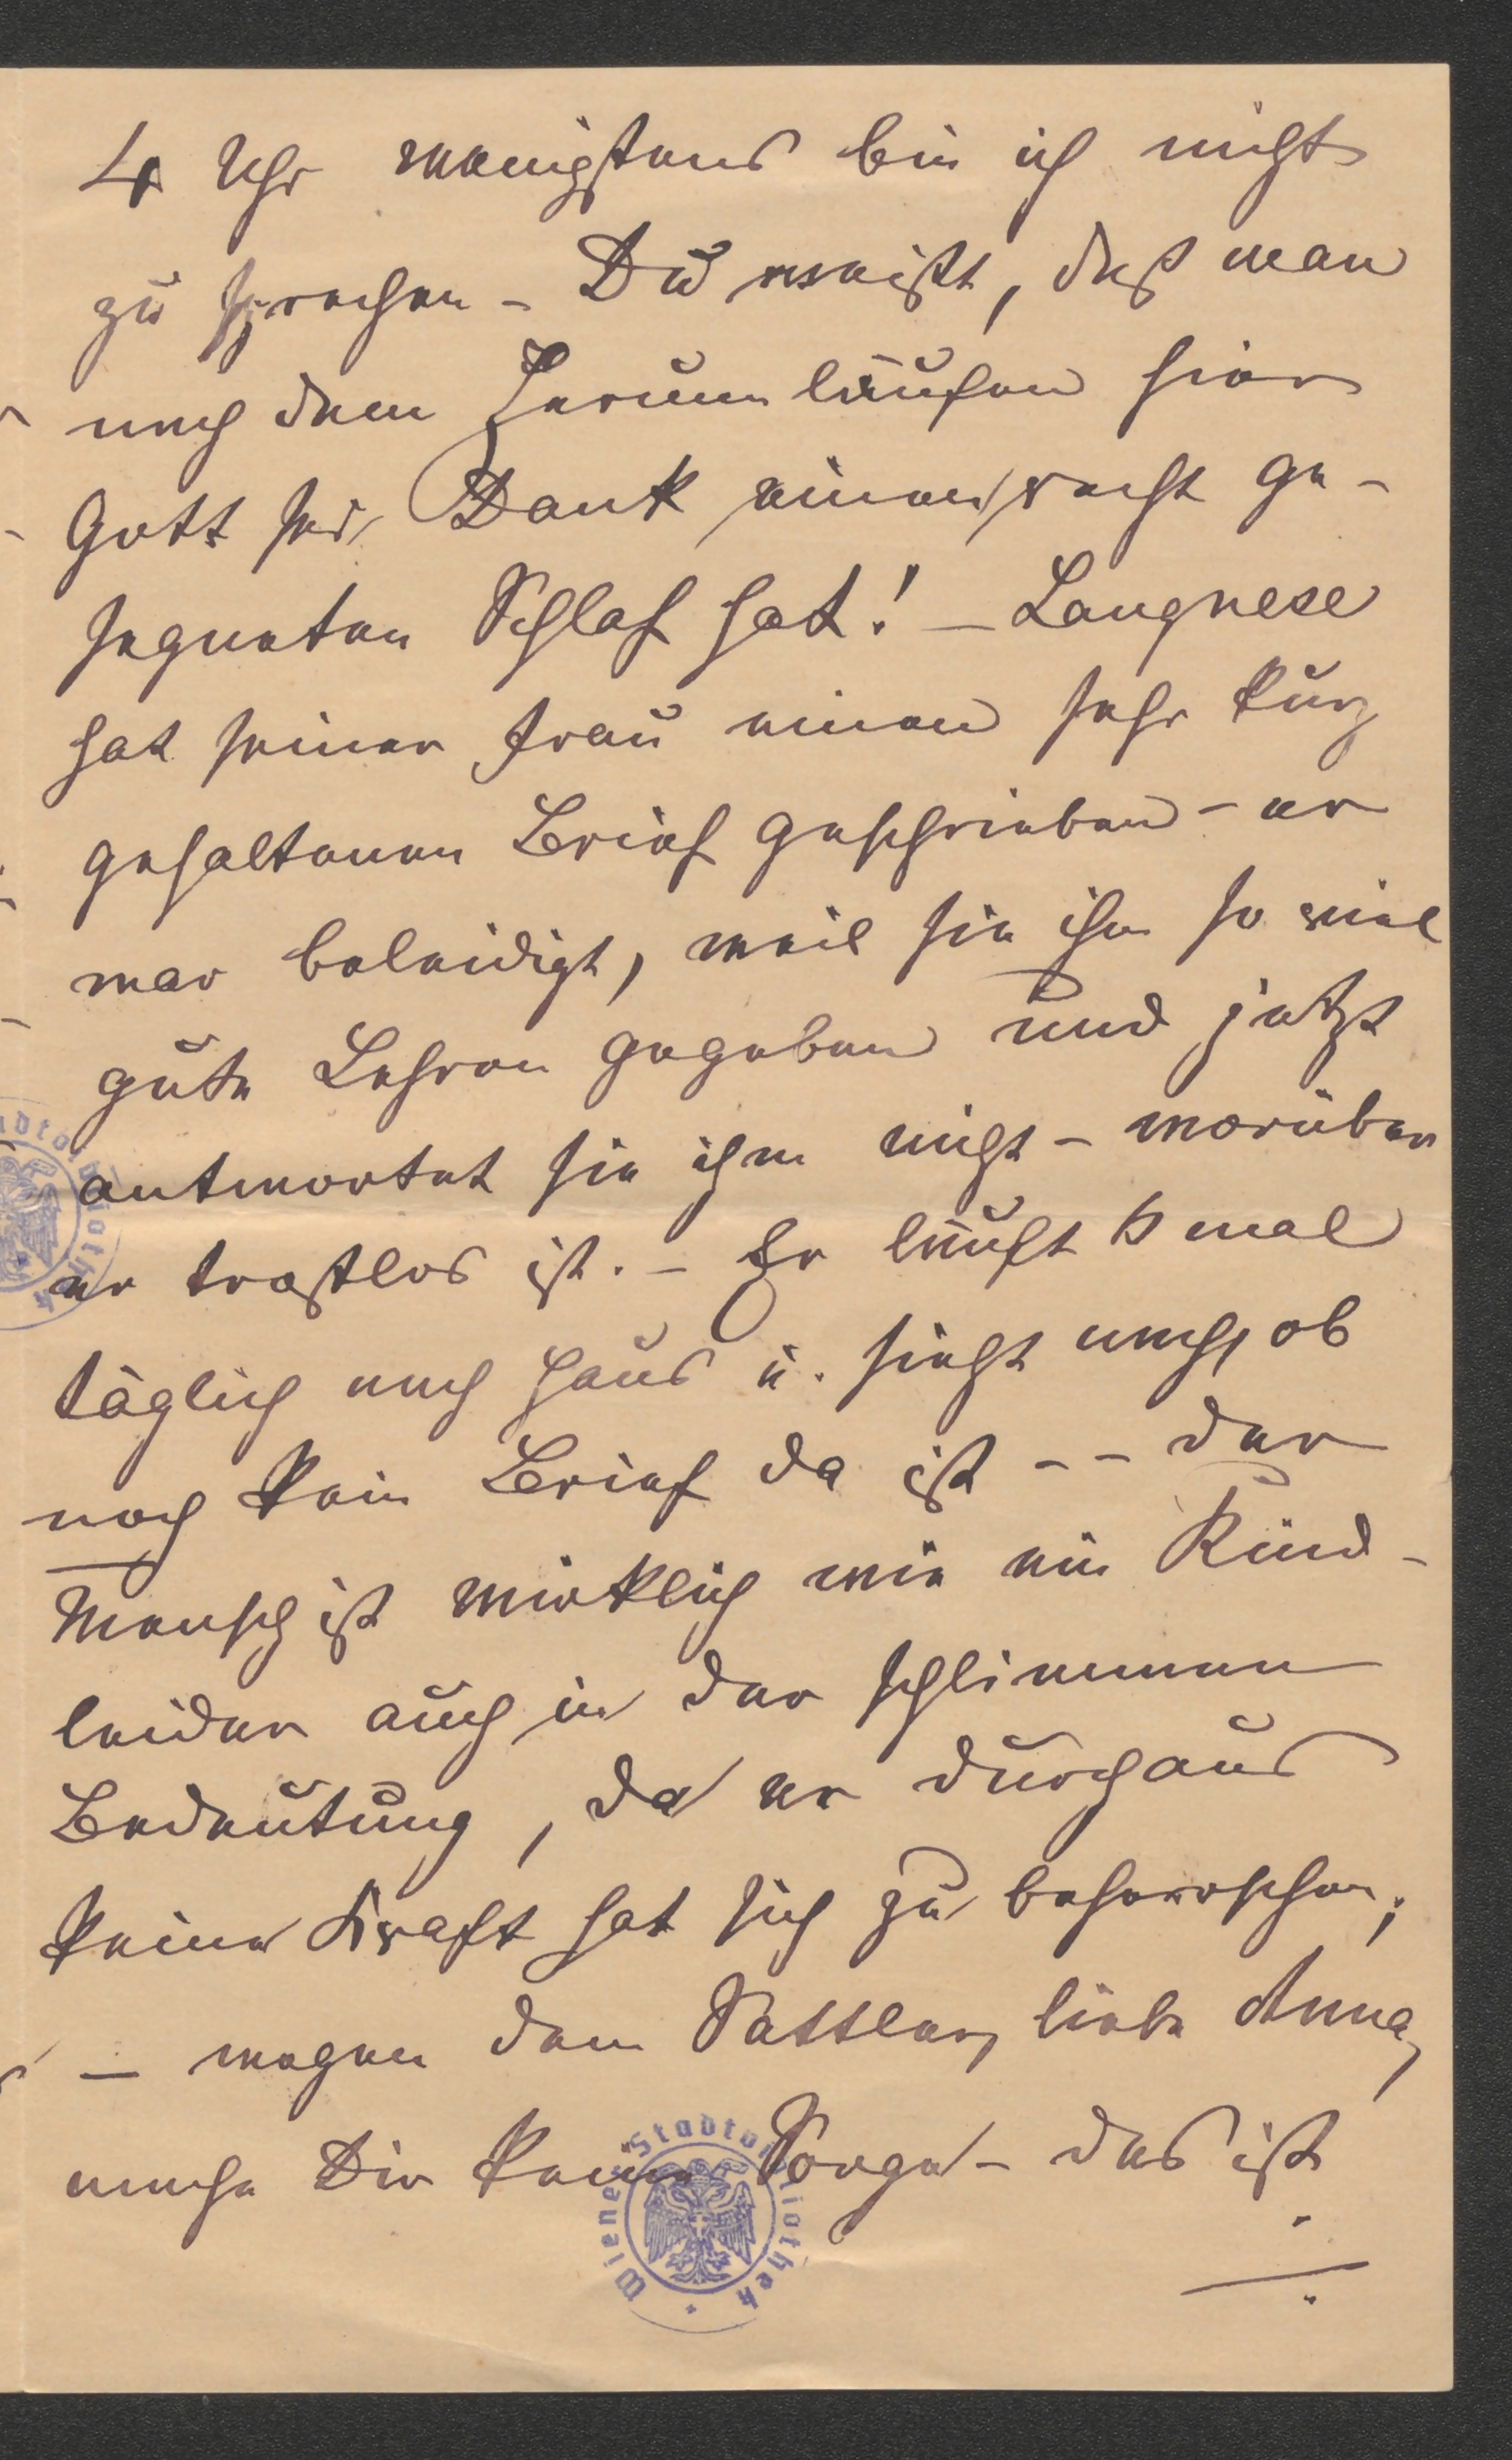 4 Uhr wenigstens bin ich nicht
zu sprechen – Du weißt, daß man
nach dem Herumlaufen hier
Gott sei Dank einen recht ge-
segneten Schlaf hat! – Langnese
hat seiner Frau einen sehr kurz
gehaltenen Brief geschrieben – er
war beleidigt, weil sie ihm so viel
gute Lehren gegeben und jetzt
antwortet sie ihm nicht – worüber
er trostlos ist. – Er läuft 6 mal
täglich nach Haus u. sieht nach, ob
noch kein Brief da ist – – der
Mensch ist wirklich wie ein Kind –
leider auch in der schlimmen
Bedeutung, da er durchaus
keine Kraft hat sich zu beherrschen;
– wegen dem Sattler, liebe Anna,
mache Dir keine Sorge – das ist
Wiener Stadtbibliothek